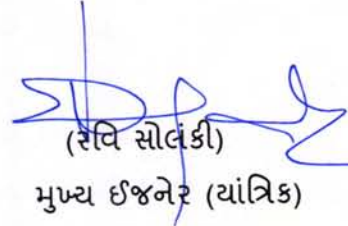 (રવિ સોલંકી)
મુખ્ય ઈજનેર (યાંત્રિક)